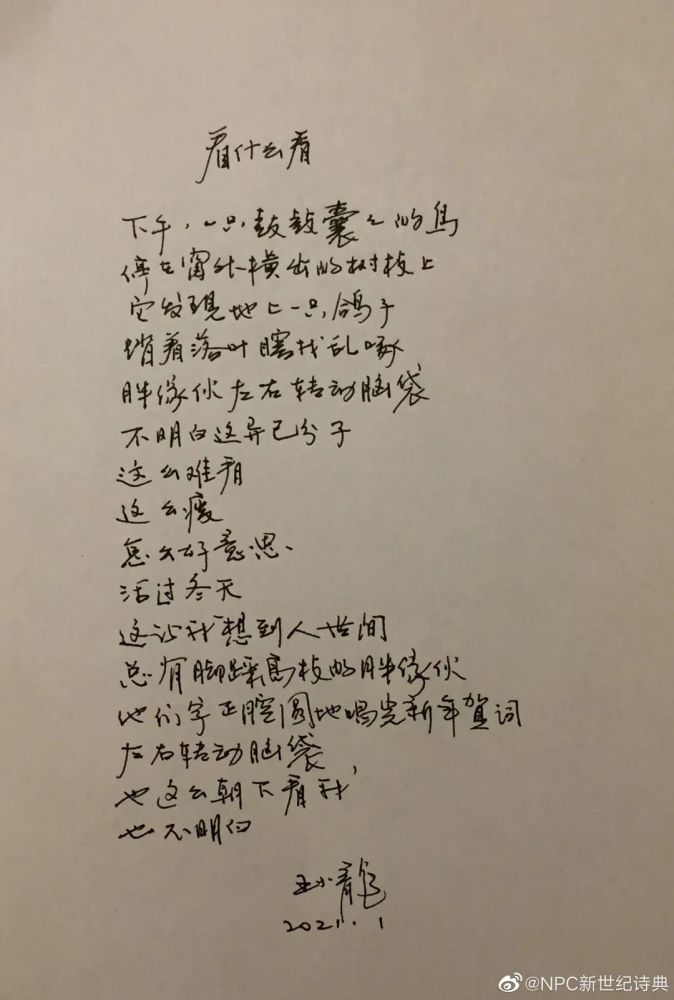 看什么看
下午，一只鼓鼓囊々的鸟
停在窗外横出的树枝上
它发現地上一只鸽子
踏着落叶瞎找乱啄
胖傢伙左右转动脑袋
不明白这异己分子
这么难看
这么瘦
怎么好意思
活过冬天
这让我想到人世间
总有脚踩高枝的胖傢伙
他们字正腔圆地唱完新年賀词
左右转动脑袋
也这么朝下看我
也不明白
王小龍
2021.1
@NPC新世纪诗典